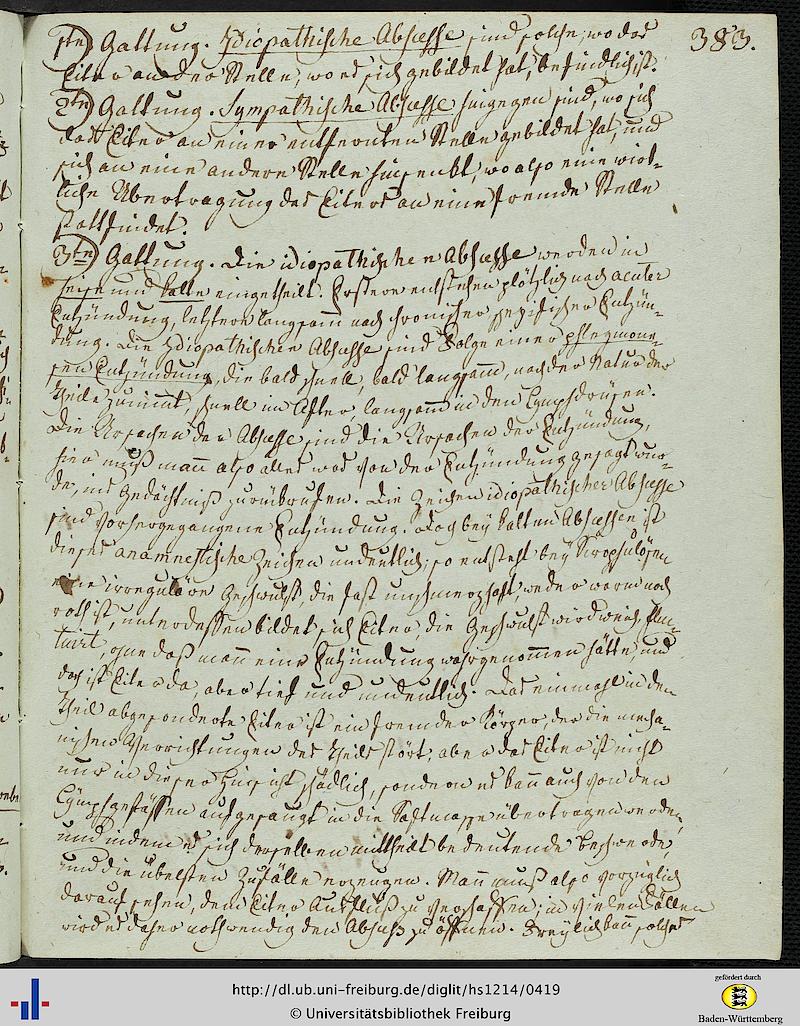 383.
1te) Gattung. Idiopathische Abscesse sind solche, wo das
Eiter an der Stelle, wo es sich gebildet hat, befindlich ist.
2te) Gattung. Sympathische Abscesse hingegen sind, wo sich
das Eiter an einer entfernten Stelle gebildet hat, und
sich an eine andere Stelle hinsenkt, wo also eine wirk-
liche Übertragung des Eiters an eine fremde Stelle
stattfindet.
3te) Gattung. Die idiopathischen Abscesse werden in
heiße und kalte eingetheilt. Erstere entstehen plötzlich nach acuter
Entzündung, letztere langsam nach chronischer Entzün-
dung. Die Idiopathischen Abscesse sind Folge einer phlegmonö-
sen Entzündung, die bald schnell, bald langsam, nach der Natur der
Theile zunimmt, schnell im After langsam in den Lymphdrüsen.
Die Ursachen der Abscesse sind die Ursachen der Entzündung,
hier muß man also alles was von der Entzündung gesagt wur-
de, ins Gedächtniß zurückrufen. Die Zeichen idiopathischer Abscesse
sind vorhergegangene Entzündung. Doch bey kalten Abscessen ist
dieses anamnestische Zeichen undeutlich, so entsteht bey Skrophulösen
eine irreguläre Geschwulst, die fast unschmerzhaft, weder warm noch
roth ist, unterdessen bildet sich Eiter, die Geschwulst wird weich, fluc-
tuirt, ohne daß man eine Entzündung wahrgenommen hätte, und
doch ist Eiter da, aber tief und undeutlich. Das einmahl in den
Theil abgesonderte Eiter ist ein fremder Körper, der die mecha-
nischen Verrichtungen des Theils stört; aber das Eiter ist nicht
nur in dieser Hinsicht schädlich, sondern es kann auch von den
Lymphgefässen aufgesaugt in die Saftmasse übertragen werden,
und indem es sich derselben mittheilt bedeutende Beschwerde,
und die übelsten Zufälle erzeugen. Man muß also vorzüglich
darauf sehen, dem Eiter Ausfluß zu verschaffen; in vielen Fällen
wird es daher nothwendig den Abscess zu öffnen. Freylich kann solches
http://dl.ub.uni-freiburg.de/diglit/hs1214/0419
© Universitätsbibliothek Freiburg
gefördert durch
Baden-Württemberg